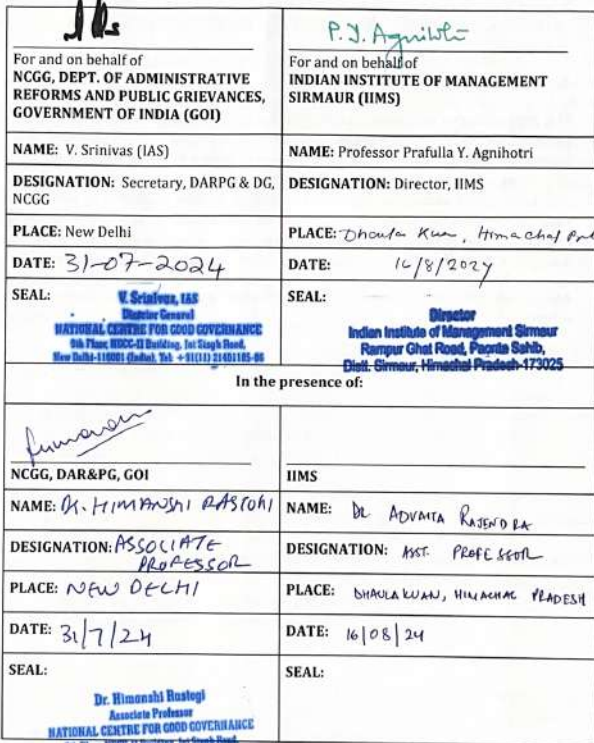 P. Y. Agnihotri
For and on behalf of
NCGG, DEPT. OF ADMINISTRATIVE
REFORMS AND PUBLIC GRIEVANCES,
GOVERNMENT OF INDIA (GOI)
For and on behalf of
INDIAN INSTITUTE OF MANAGEMENT
SIRMAUR (IIMS)
NAME: V. Srinivas (IAS)
NAME: Professor Prafulla Y. Agnihotri
DESIGNATION: Secretary, DARPG & DG,
NCGG
DESIGNATION: Director, IIMS
PLACE: New Delhi
PLACE: Dhaula Kuan, Himachal
DATE: 31-07-2024
DATE: 16/8/2024
SEAL:
V. Srinivas, IAS
Director General
NATIONAL CENTRE FOR GOOD GOVERNANCE
New Delhi-110001 (India), Tel:
SEAL:
Director
Indian Institute of Management Sirmaur
Rampur Ghat Road, Paonta Sahib,
Distt. Sirmaur, Himachal Pradesh-173025
In the presence of:
NCGG, DAR&PG, GOI
IIMS
NAME: Dr. HIMANSHI RASTOGI
NAME: Dr ADVAITA RAJENDRA
DESIGNATION: ASSOCIATE
PROFESSOR
DESIGNATION: ASST. PROFESSOR
PLACE: NEW DELHI
PLACE: DHAULA KUAN, HIMACHAL PRADESH
DATE: 31/7/24
DATE: 16/08/24
SEAL:
Dr. Himanshi Rastogi
Associate Professor
NATIONAL CENTRE FOR GOOD GOVERNANCE
SEAL: